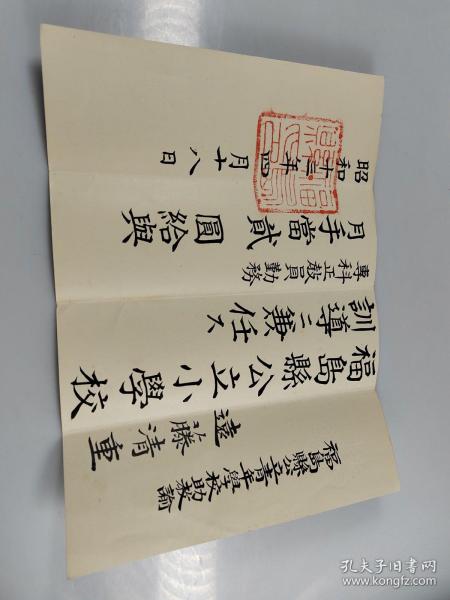 福島縣公立青年學校助教諭
遠藤清重
福島縣公立小學校
訓導ニ兼任ス
專科正教員勤務
月手當貳圓給與
昭和十三年四月十八日
孔夫子旧书网
www.kongfz.com